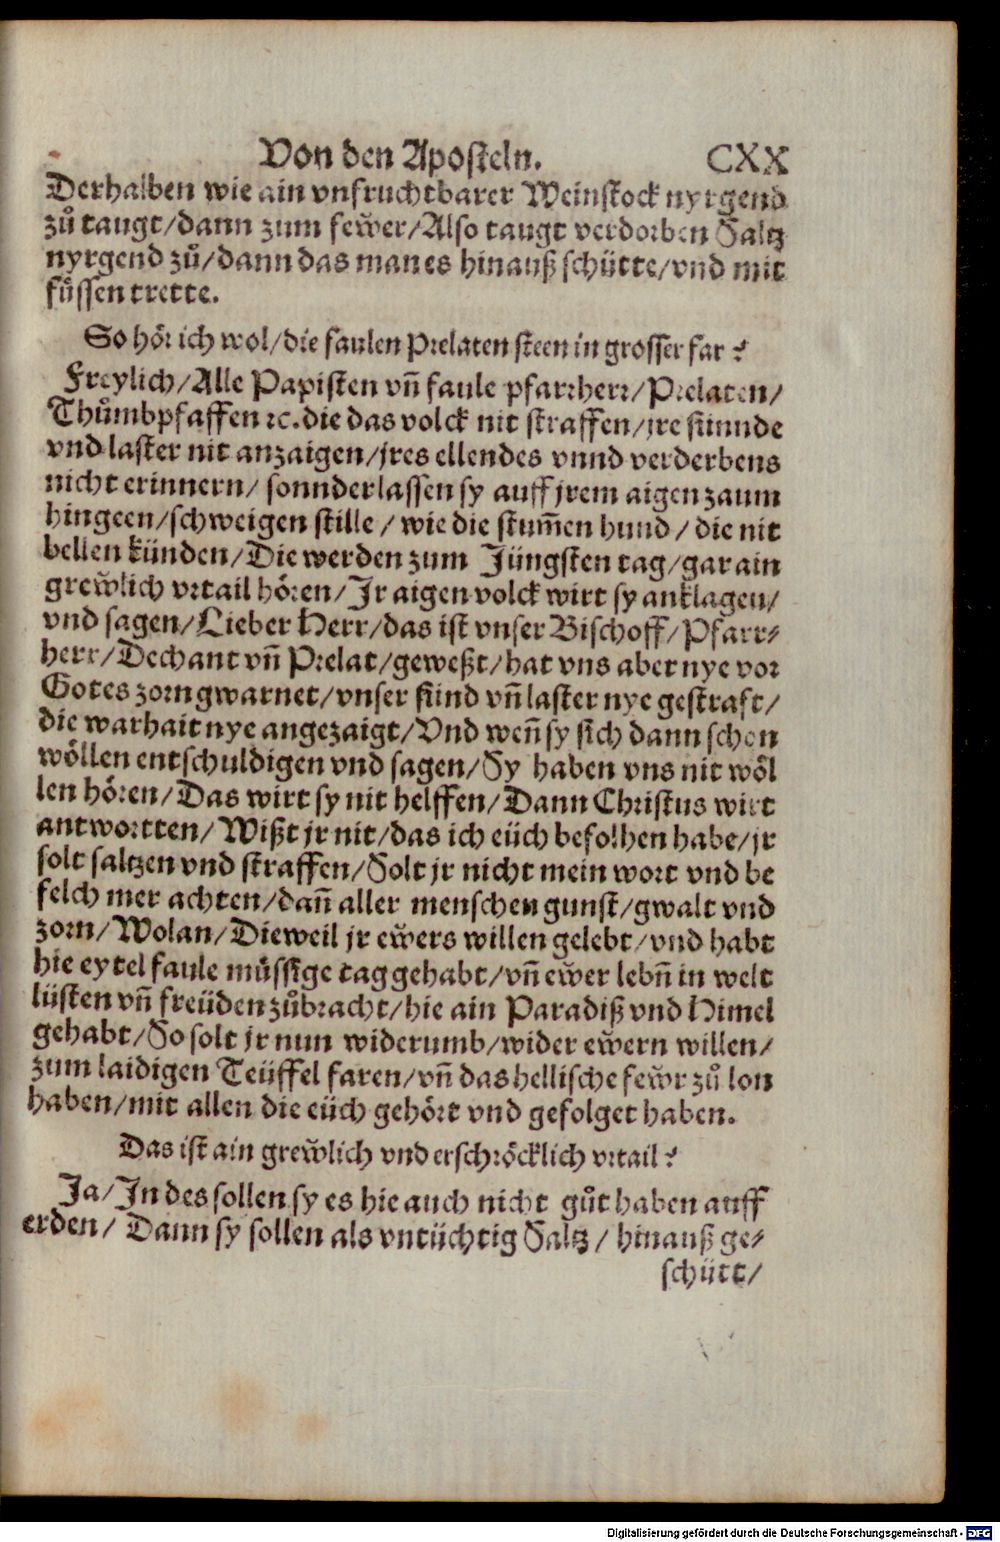 Von den Aposteln. CXX
Derhalben wie ain vnfruchtbarer Weinstock nyrgend
zů taugt/dann zum fewer/Also taugt verdorben Saltz
nyrgend zů/dann das man es hinauß schütte/vnd mit
füssen trette.
So hör ich wol/die faulen Prelaten steen in grosser far?
Freylich/Alle Papisten vñ faule pfarrherr/Prelaten/
Thůmbpfaffen ꝛc. die das volck nit straffen/jre sünnde
vnd laster nit anzaigen/jres ellendes vnnd verderbens
nicht erinnern/ sonnder lassen sy auff jrem aigen zaum
hingeen/schweigen stille / wie die stum̃en hund / die nit
bellen künden/Die werden zum Jüngsten tag/gar ain
grewlich vrtail hören/Jr aigen volck wirt sy anklagen/
vnd sagen/Lieber Herr/das ist vnser Bischoff/Pfarr⸗
herr/Dechant vñ Prelat/geweßt/hat vns aber nye vor
Gotes zorn gwarnet/vnser sünd vñ laster nye gestraft/
die warhait nye angezaigt/Vnd weñ sy sich dann schon
wöllen entschuldigen vnd sagen/Sy haben vns nit wöl
len hören/Das wirt sy nit helffen/Dann Christus wirt
antwortten/Wißt jr nit/das ich eüch befolhen habe/jr
solt saltzen vnd straffen/Solt jr nicht mein wort vnd be
felch mer achten/dañ aller menschen gunst/gwalt vnd
zorn/Wolan/Dieweil jr ewers willen gelebt/vnd habt
hie eytel faule müssige tag gehabt/vñ ewer lebñ in welt
lüsten vñ freüden zůbracht/hie ain Paradiß vnd Himel
gehabt/So solt jr nun widerumb/wider ewern willen/
zum laidigen Teüffel faren/vñ das hellische fewr zů lon
haben/mit allen die eüch gehört vnd gefolget haben.
Das ist ain grewlich vnd erschröcklich vrtail?
Ja/In des sollen sy es hie auch nicht gůt haben auff
erden/ Dann sy sollen als vntüchtig Saltz / hinauß ge⸗
schütt/
Digitalisierung gefördert durch die Deutsche Forschungsgemeinschaft - DFG